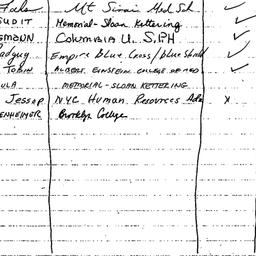 Mt Sinai Med Sch ✓
Memorial-Sloan Kettering ✓
Columbia U. SPH ✓
Empire Blue Cross/Blue Shield ✓
Tobin Albert Einstein College of Med ✓
ULA Memorial-Sloan Kettering
Jessop NYC Human Resources Adm x
ENHEIMER Brooklyn College